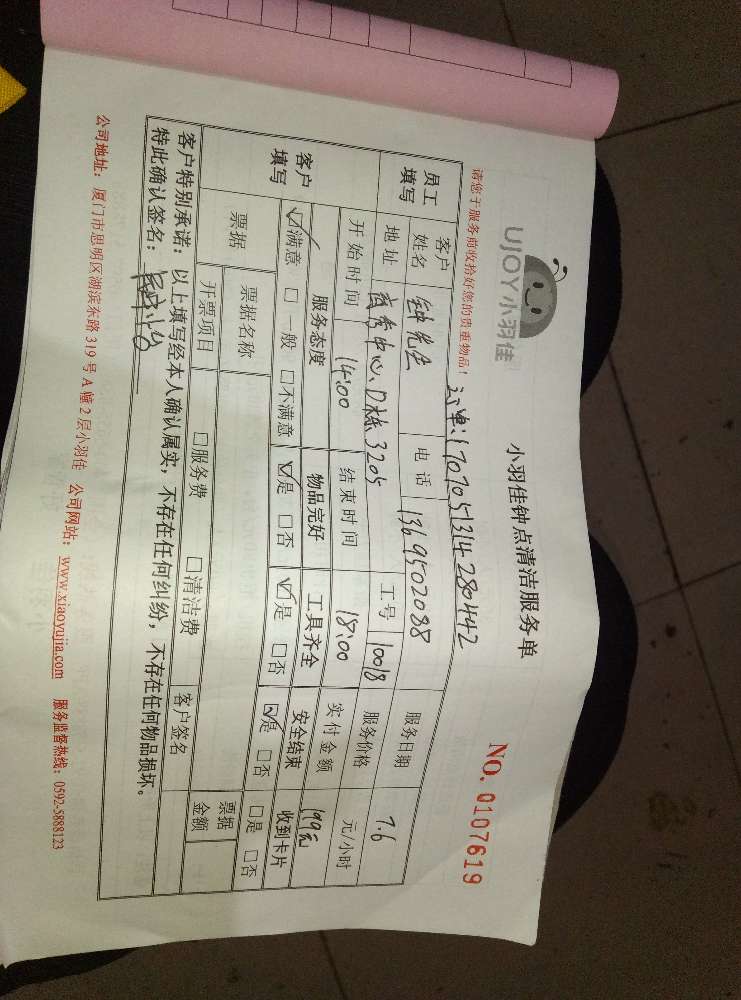 UJOY小羽佳
小羽佳钟点清洁服务单
NO. 0107619
请您于服务前收拾好您的贵重物品！
订单:1707051314280442
员工填写 客户姓名 钟先生 电话 1369502088 服务日期 7.6
地址 商务中心、D栋3205 工号 10018 服务价格 元/小时
开始时间 14:00 结束时间 18:00 实付金额 199元
客户填写 服务态度 物品完好 工具齐全 安全结束 收到卡片
☑满意 □一般 □不满意 ☑是 □否 ☑是 □否 ☑是 □否 □是 □否
票据 票据名称 票据金额
开票项目 □服务费 □清洁费 客户签名
客户特别承诺：以上填写经本人确认属实，不存在任何纠纷，不存在任何物品损坏。
特此确认签名：
公司地址：厦门市思明区湖滨东路319号A幢2层小羽佳 公司网站：www.xiaoyujia.com 服务监督热线：0592-5888123